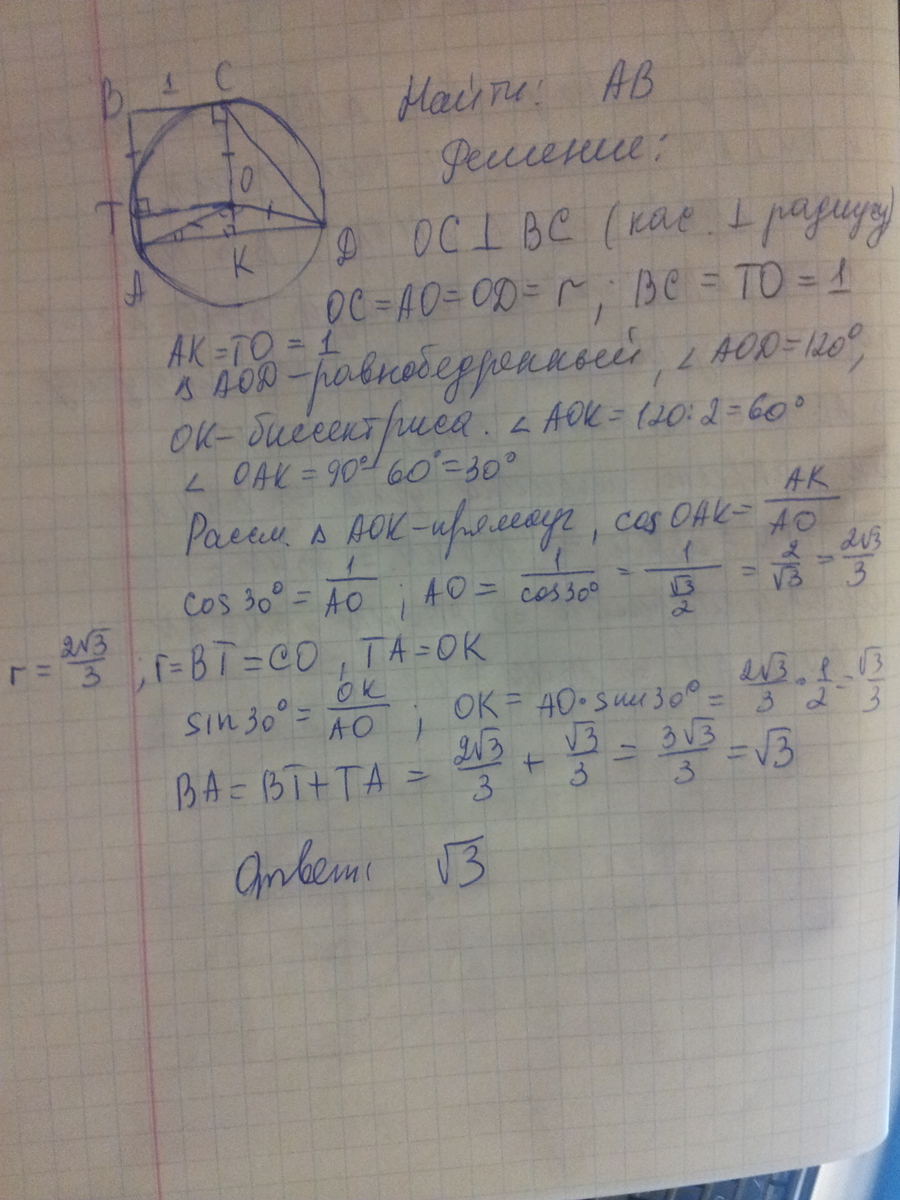 B 1 C
T O
A K D
Найти: AB
Решение:
OC ⊥ BC (кас. ⊥ радиусу)
OC = AO = OD = r ; BC = TO = 1
AK = TO = 1
Δ AOD – равнобедренный, ∠ AOD = 120°,
OK – биссектриса. ∠ AOK = 120 : 2 = 60°
∠ OAK = 90° 60° = 30°
Рассм. Δ AOK – прямоуг, cos OAK = AK/AO
cos 30° = 1/AO ; AO = 1/cos 30° = 1/(√3/2) = 2/√3 = 2√3/3
r = 2√3/3 ; r = BT = CO , TA = OK
sin 30° = OK/AO ; OK = AO · sin 30° = 2√3/3 · 1/2 = √3/3
BA = BT + TA = 2√3/3 + √3/3 = 3√3/3 = √3
Ответ: √3